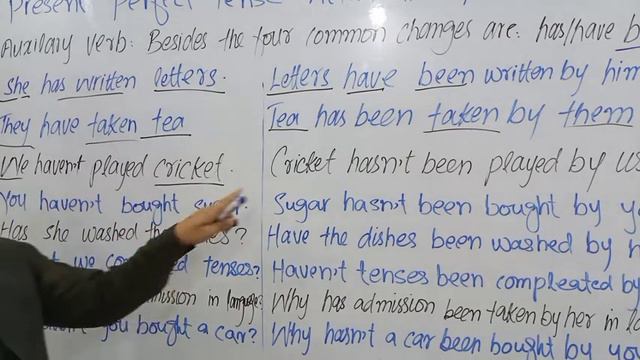 Present Perfect Tense
Auxilary verb: Besides the four common changes are: has/have
she has written letters. Letters have been written by him
They have taken tea Tea has been taken by them
We haven't played cricket. Cricket hasn't been played by us
You haven't bought Sugar hasn't been bought by
Has she washed Have the dishes been washed by
we tenses? Haven't tenses been compleated by
in language? Why has admission been taken by her in
you bought a car? Why hasn't a car been bought by